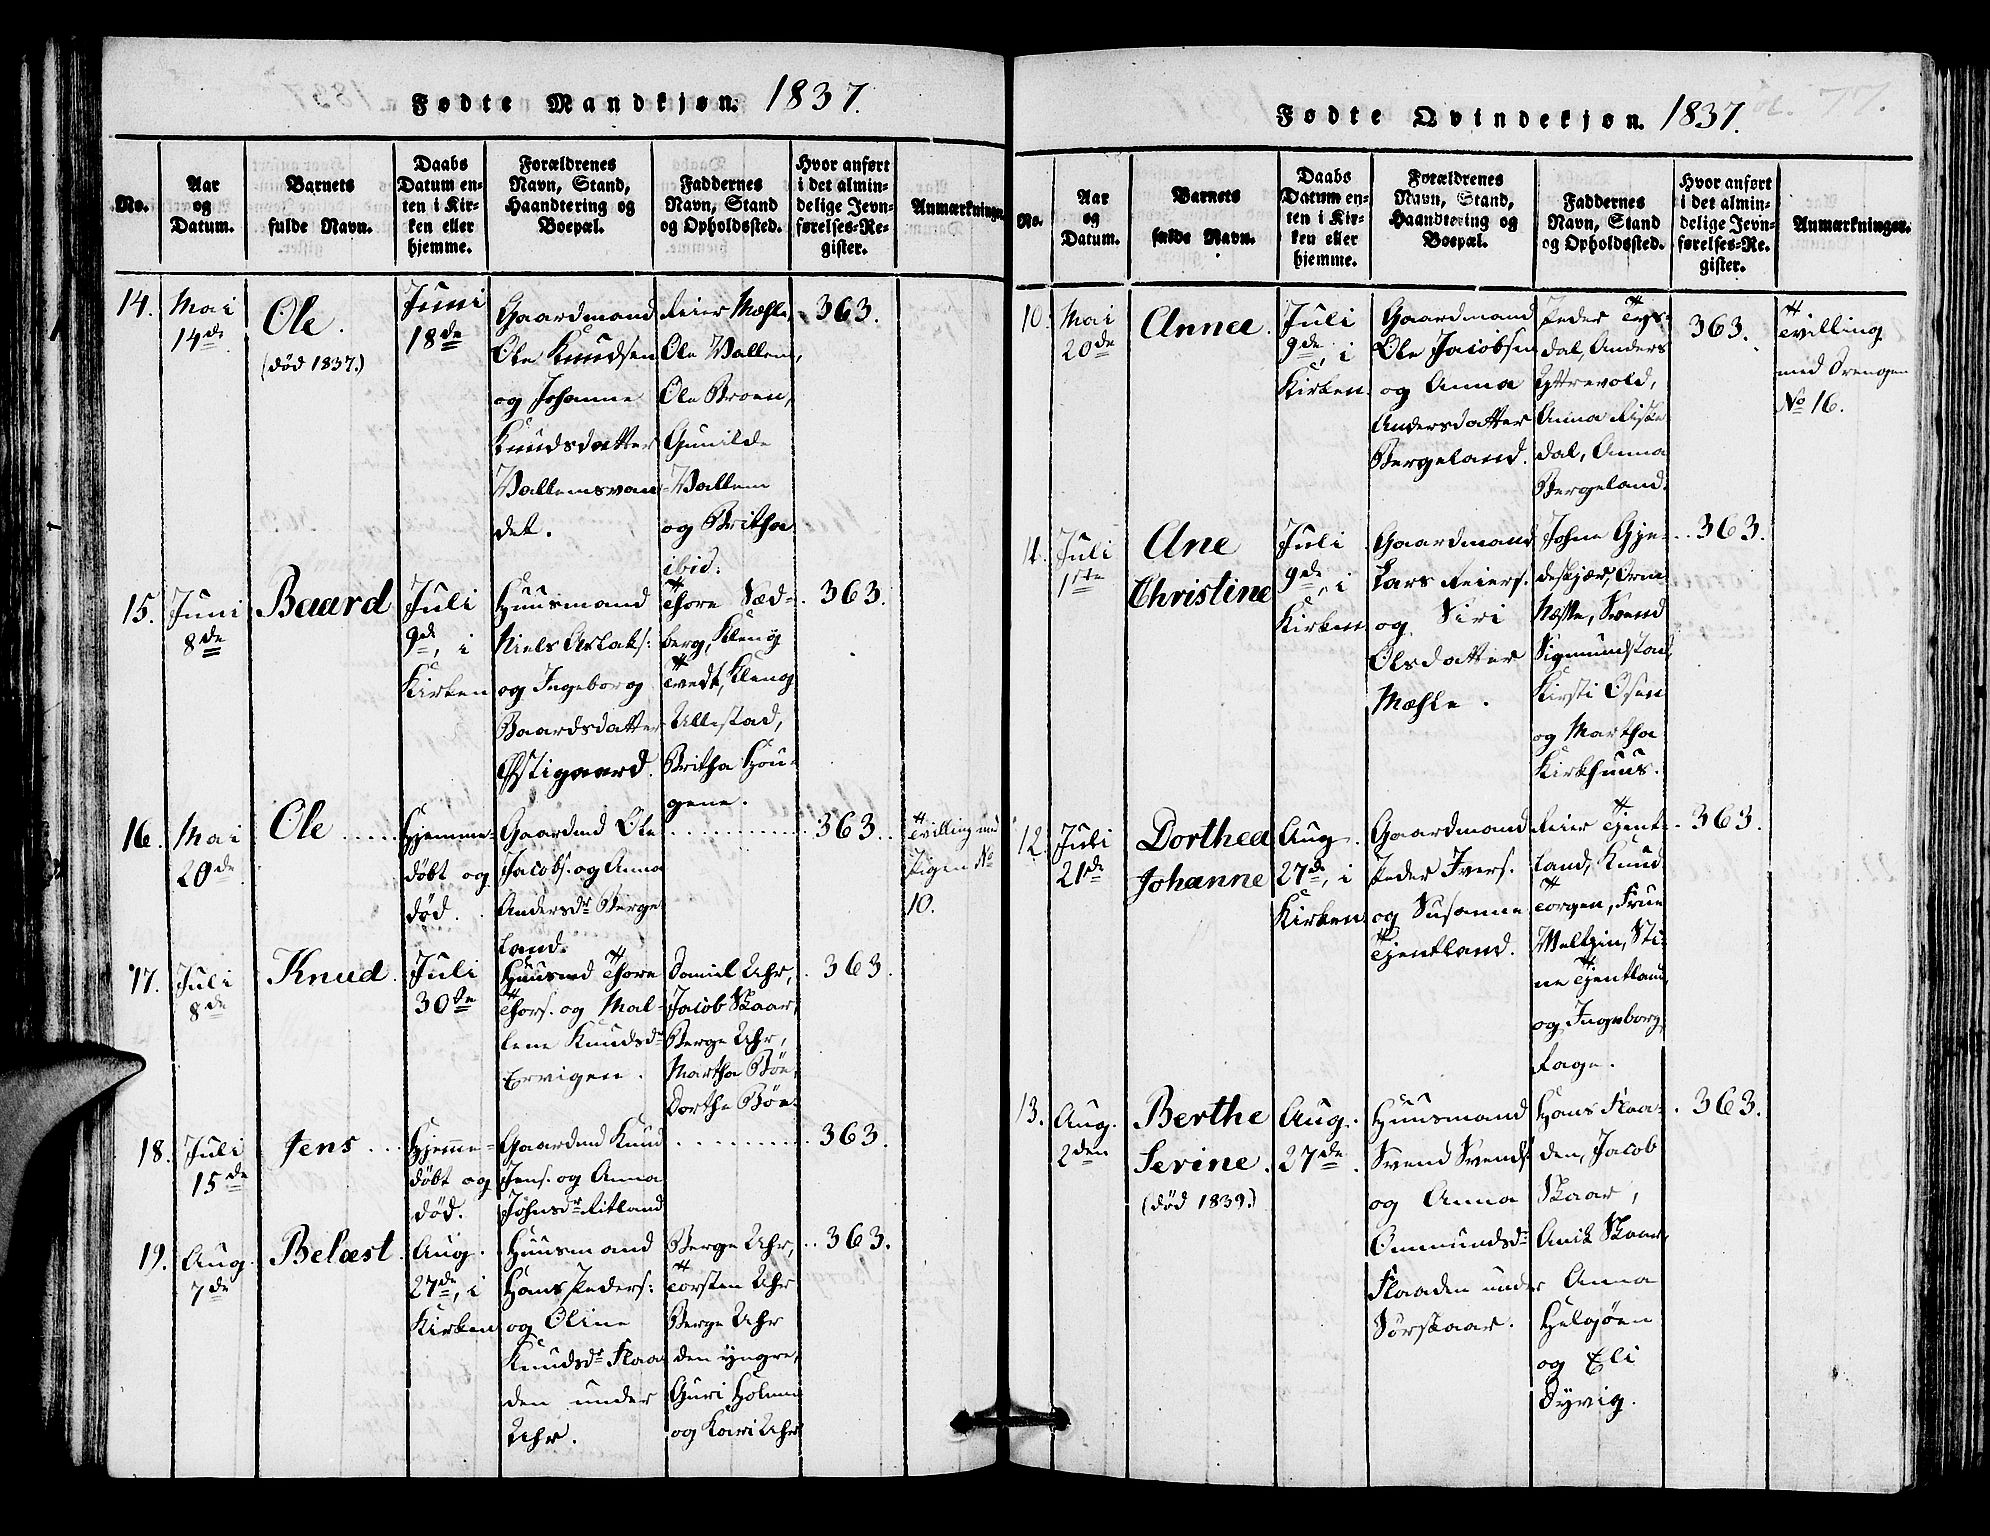 Fødte Mandkjøn. 1837.
No.
Aar
og
Datum.
Barnets
fulde Navn.
Daabs
Datum en-
ten i Kir-
ken eller
hjemme.
Forældrenes
Navn, Stand,
Haandtering og
Boepæl.
Faddernes
Navn, Stand
og Opholdssted.
Hvor anført
i det almin-
delige Jevn-
førelses-Re-
gister.
Anmærkninger.
14.
Mai
14de
Ole.
(død 1837.)
Juni
18de
Gaardmand
Ole Knudsen
og Johanne
Knudsdatter
Vallemsvan-
det.
Reier Mæhle,
Ole Vallem,
Ole Broen,
Gunilde
Vallem
og Britha
ibid:
363.
15.
Juni
8de
Baard
Juli
9de, i
Kirken
Huusmand
Niels Aslaks:
og Ingeborg
Baardsdatter
Østigaard.
Thore Sæd-
berg, Kleng
Tvedt, Kleng
Ullestad,
Britha Hou-
gene.
363.
16.
Mai
20de
Ole
Hjemme-
døbt og
død.
Gaardmd Ole
Jacobs. og Anna
Andersdr Berge
land.
363.
Tvilling med
Pigen No
10.
17.
Juli
8de
Knud
Juli
30te
Huusmd Thore
Thors. og Mal-
lene Knudsdr
Ervigen.
Daniel Uhr,
Jacob Skaar,
Berge Uhr,
Martha Böe,
Dorthe Böe.
363.
18.
Juli
15de
Jens
Hjemme-
døbt og
død.
Gaardmd Knud
Jens. og Anna
Johnsdr Ritland
363.
19.
Aug.
7de
Belæst.
Aug.
27de, i
Kirken
Huusmand
Hans Peders:
og Oline
Knudsdr Flaa
den under
Uhr.
Berge Uhr,
Torsten Uhr
Berge Uhr
den yngre,
Guri Holmen
og Kari Uhr
363.
Fødte Qvindekjøn. 1837.
77.
No.
Aar
og
Datum.
Barnets
fulde Navn.
Daabs
Datum en-
ten i Kir-
ken eller
hjemme.
Forældrenes
Navn, Stand,
Haandtering og
Boepæl.
Faddernes
Navn, Stand
og Opholdssted.
Hvor anført
i det almin-
delige Jevn-
førelses-Re-
gister.
Anmærkninger.
10.
Mai
20de
Anna.
Juli
9de, i
Kirken.
Gaardmand
Ole Jacobsen
og Anna
Andersdatter
Bergeland.
Peder Tys-
dal, Anders
Yttrevold,
Anna Riske
dal, Anna
Bergeland.
363.
Tvilling
med Drengen
No 16.
Juli
1ste
Ane
Christine
Juli
9de, i
Kirken
Gaardmand
Lars Reiers.
og Siri
Olsdatter
Mæhle.
Johne Gje-
deskjær, Orm
Næsse, Svend
Sigmundstad,
Kirsti Osen
og Martha
Kirkhuus.
363.
12.
Juli
21de
Dorthea
Johanne
Aug.
27de, i
Kirken
Gaardmand
Peder Ivers.
og Susanne
Tjentland.
Reier Tjent-
land, Knud
Torgen, Frue
Meltzin, Sti-
ne Tjentland,
og Ingeborg
Fage.
363.
13.
Aug.
2den
Berthe
Serine.
(død 1839.)
Aug.
27de
Huusmand
Svend Svends.
og Anna
Ommundsdr
Flaaden under
Sørskaar.
Hans Flaa-
den, Jacob
Skaar,
Anik Skaar,
Anna
Helgøen
og Eli
Dyvig.
363.